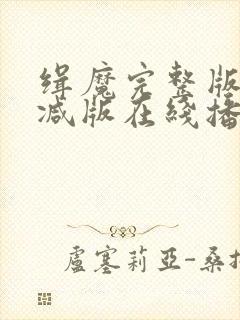 缉魔完整版
减版在线播
盧塞莉亞-桑